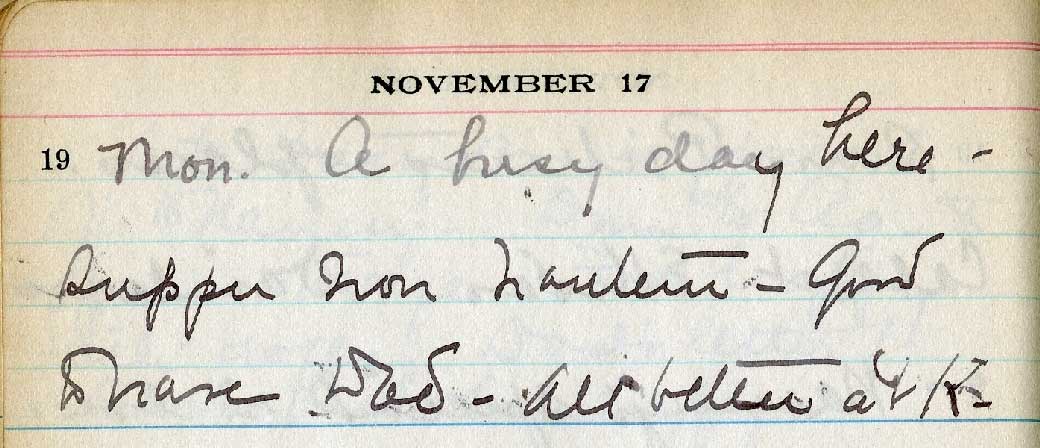 NOVEMBER 17
19 Mon. A busy day here -
supper non - Good
to have Dad - all better at K -